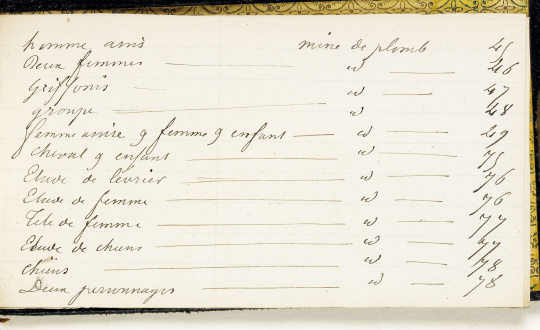 homme assis mine de plomb 45
Deux femmes — id — 46
Griffonis — id — 47
groupe — id — 48
femme assise q femme q enfant — id — 49
cheval q enfant — id — 75
Etude de lévrier — id — 76
Etude de femme — id — 76
Tete de femme — id — 77
Etude de chiens — id — 77
chiens — id — 78
Deux personnages — id — 78